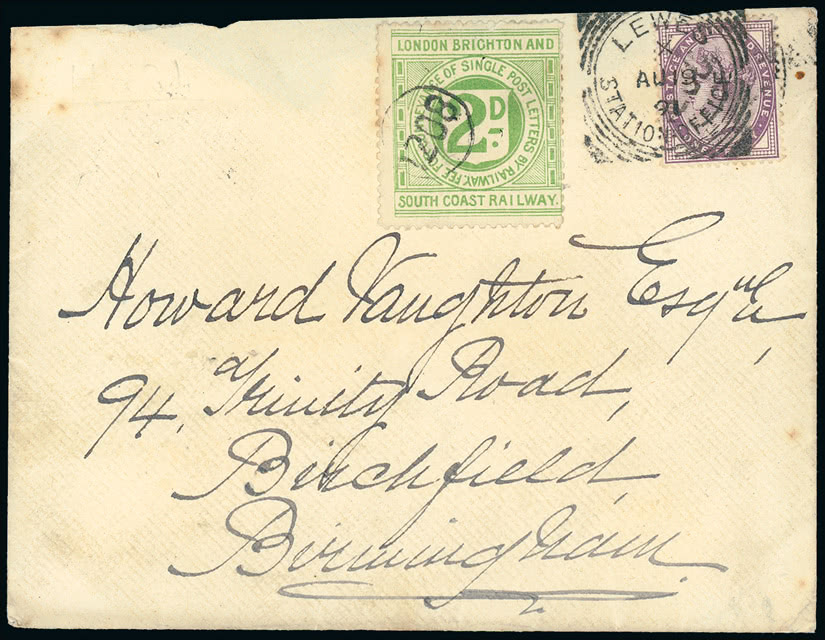 LONDON BRIGHTON AND
OF SINGLE POST LETTERS BY RAILWAY. FEE FOR
2D
SOUTH COAST RAILWAY.
208
LEWES
X
AU 19
91
STATION OFFICE
POSTAGE AND REVENUE
Howard Vaughton Esqre,
94, Trinity Road,
Birchfield,
Birmingham.